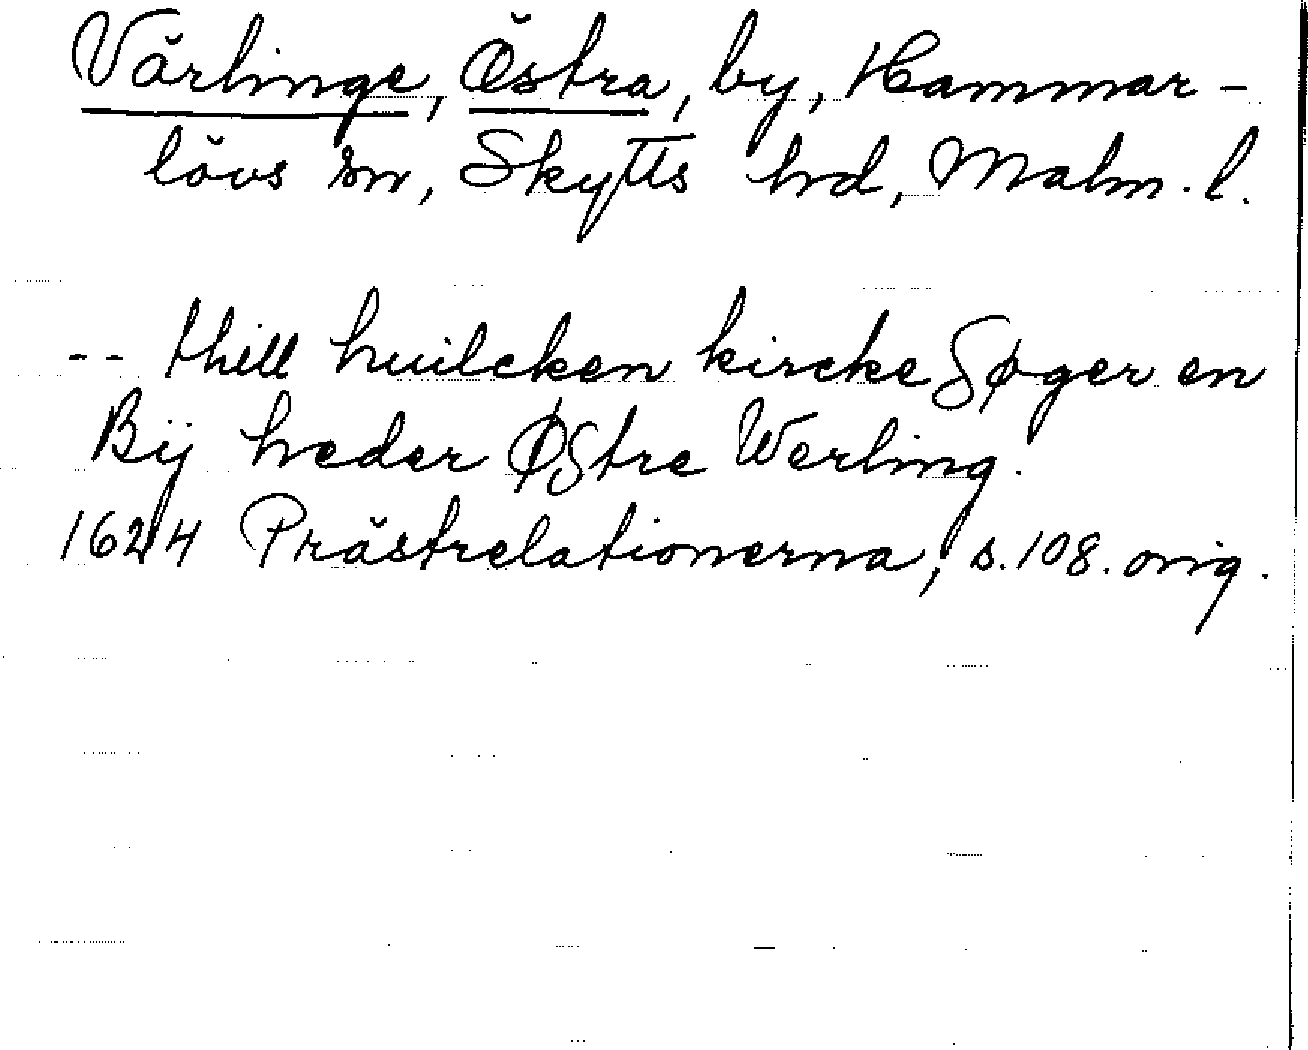 Värlinge, Östra, by, Hammar-
lövs sn, Skytts hd, Malm. l.
-- thill huilcken kircke Søger en
Bÿ heder Østre Werling.
1624 Prästrelationerna, s. 108. orig.